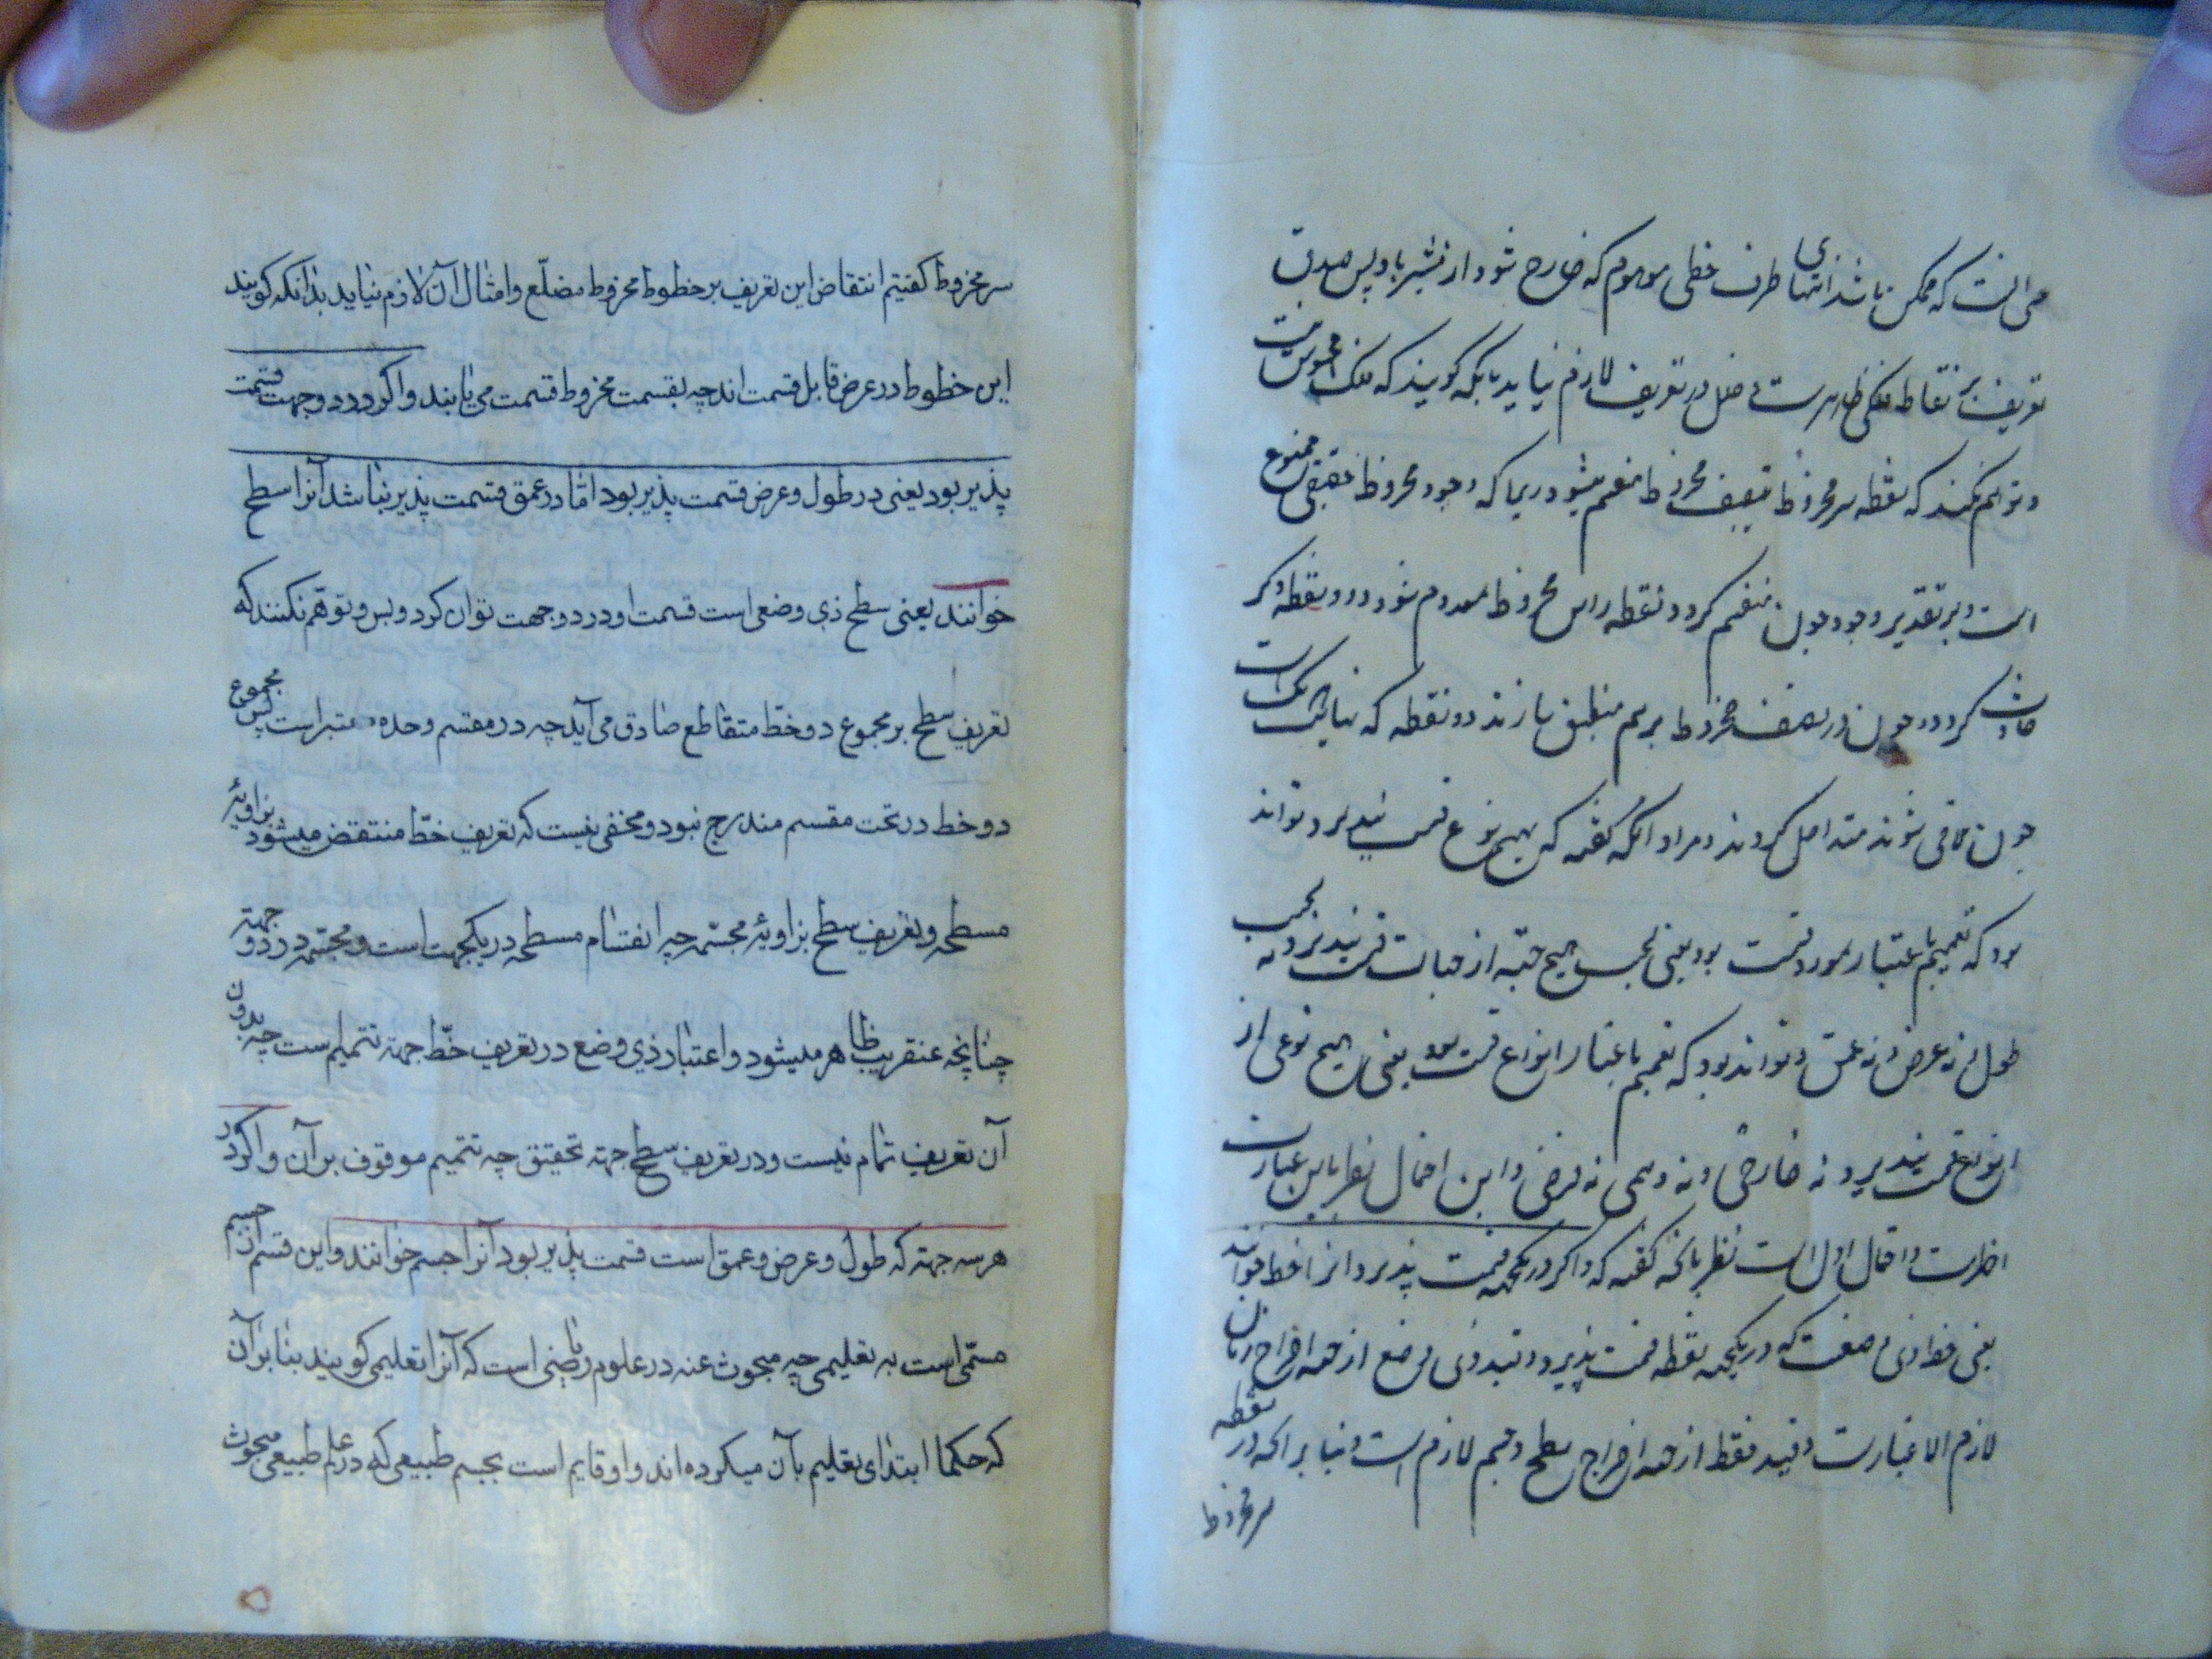 حی انست که ممکن باشد انتهای طرف خطی موهوم که خارج شود از مشیر باو پس صدق
تعریف بر نقاط فلکی ظاهرست و خلل در تعریف لازم نیاید بانکه گویند که فلک محسوس نیست
و توهم نکنند که نقطه سر مخروط بتنصیف مخروط منقسم میشود زیرا که وجود مخروط حقیقی ممنوع
است و بر تقدیر وجود چون منقسم گردد نقطه راس مخروط معدوم شود و دو نقطه دیگر
حادث گردد و چون دو نصف مخروط برهم منطبق سازند دو نقطه که نهایت
چون ملاقی شوند متداخل گردند و مراد انکه گفته که بهیچ نوع قسمت نپذیرد تواند
بود که تعمیم باعتبار مورد قسمت بود یعنی بحسب هیچ جهة از جهات قسمت نپذیرد نه بحسب
طول و نه عرض و نه عمق و تواند بود که تعمیم باعتبار انواع قسمت بود یعنی هیچ نوعی از
انواع قسمت نپذیرد نه خارجی و نه وهمی نه فرضی و این احتمال نظر باین عبارت
اظهرست و احتمال اول انسب نظر بانچه گفته که و اگر در یکجهة قسمت پذیرد انرا خط خوانند
یعنی خط ذی وضعیست که در یکجهة فقط قسمت پذیرد و قید ذی وضع از جهة اخراج زمان
لازم الاعتبارست و قید فقط از جهة اخراج سطح و جسم لازم است و بنا برانکه در نقطه
سر مخروط
سر مخروط کفتیم انتقاض این تعریف بر خطوط مخروط مضلّع و امثال آن لازم نیاید بدانکه کویند
این خطوط در عرض قابل قسمت اند چه بقسمت مخروط قسمت می یابند و اکر در دو جهت قسمت
پذیر بود یعنی در طول و عرض قسمت پذیر بود امّا در عمق قسمت پذیر نباشد آنرا سطح
خوانند یعنی سطح ذی وضعی است قسمت او در دو جهت توان کرد و بس و توهّم نکنند که
تعریف سطح بر مجموع دو خطّ متقاطع صادق می آید چه در مقسم وحده معتبر است پس مجموع
دو خط در تحت مقسم مندرج نبود و مخفی نیست که تعریف خطّ منتقض میشود بزاویهٔ
مسطحه و تعریف سطح بزاویهٔ مجسّمه چه انقسام مسطحه در یکجهت است و مجسّمه در دو جهته
چنانچه عنقریب ظاهر میشود و اعتبار ذی وضع در تعریف خطّ جهته تتمیم است چه بدون
آن تعریف تمام نیست و در تعریف سطح جهته تحقیق چه تتمیم موقوف بر آن و اکر در
هر سه جهته که طول و عرض و عمق است قسمت پذیر بود آنرا جسم خوانند و این قسم از جسم
مسمّی است به تعلیمی چه مبحوث عنه در علوم ریاضی است که آنرا تعلیمی کویند بنا بر آن
که حکما ابتدای تعلیم بآن میکرده اند و او قایم است بجسم طبیعی که در علم طبیعی مبحوث